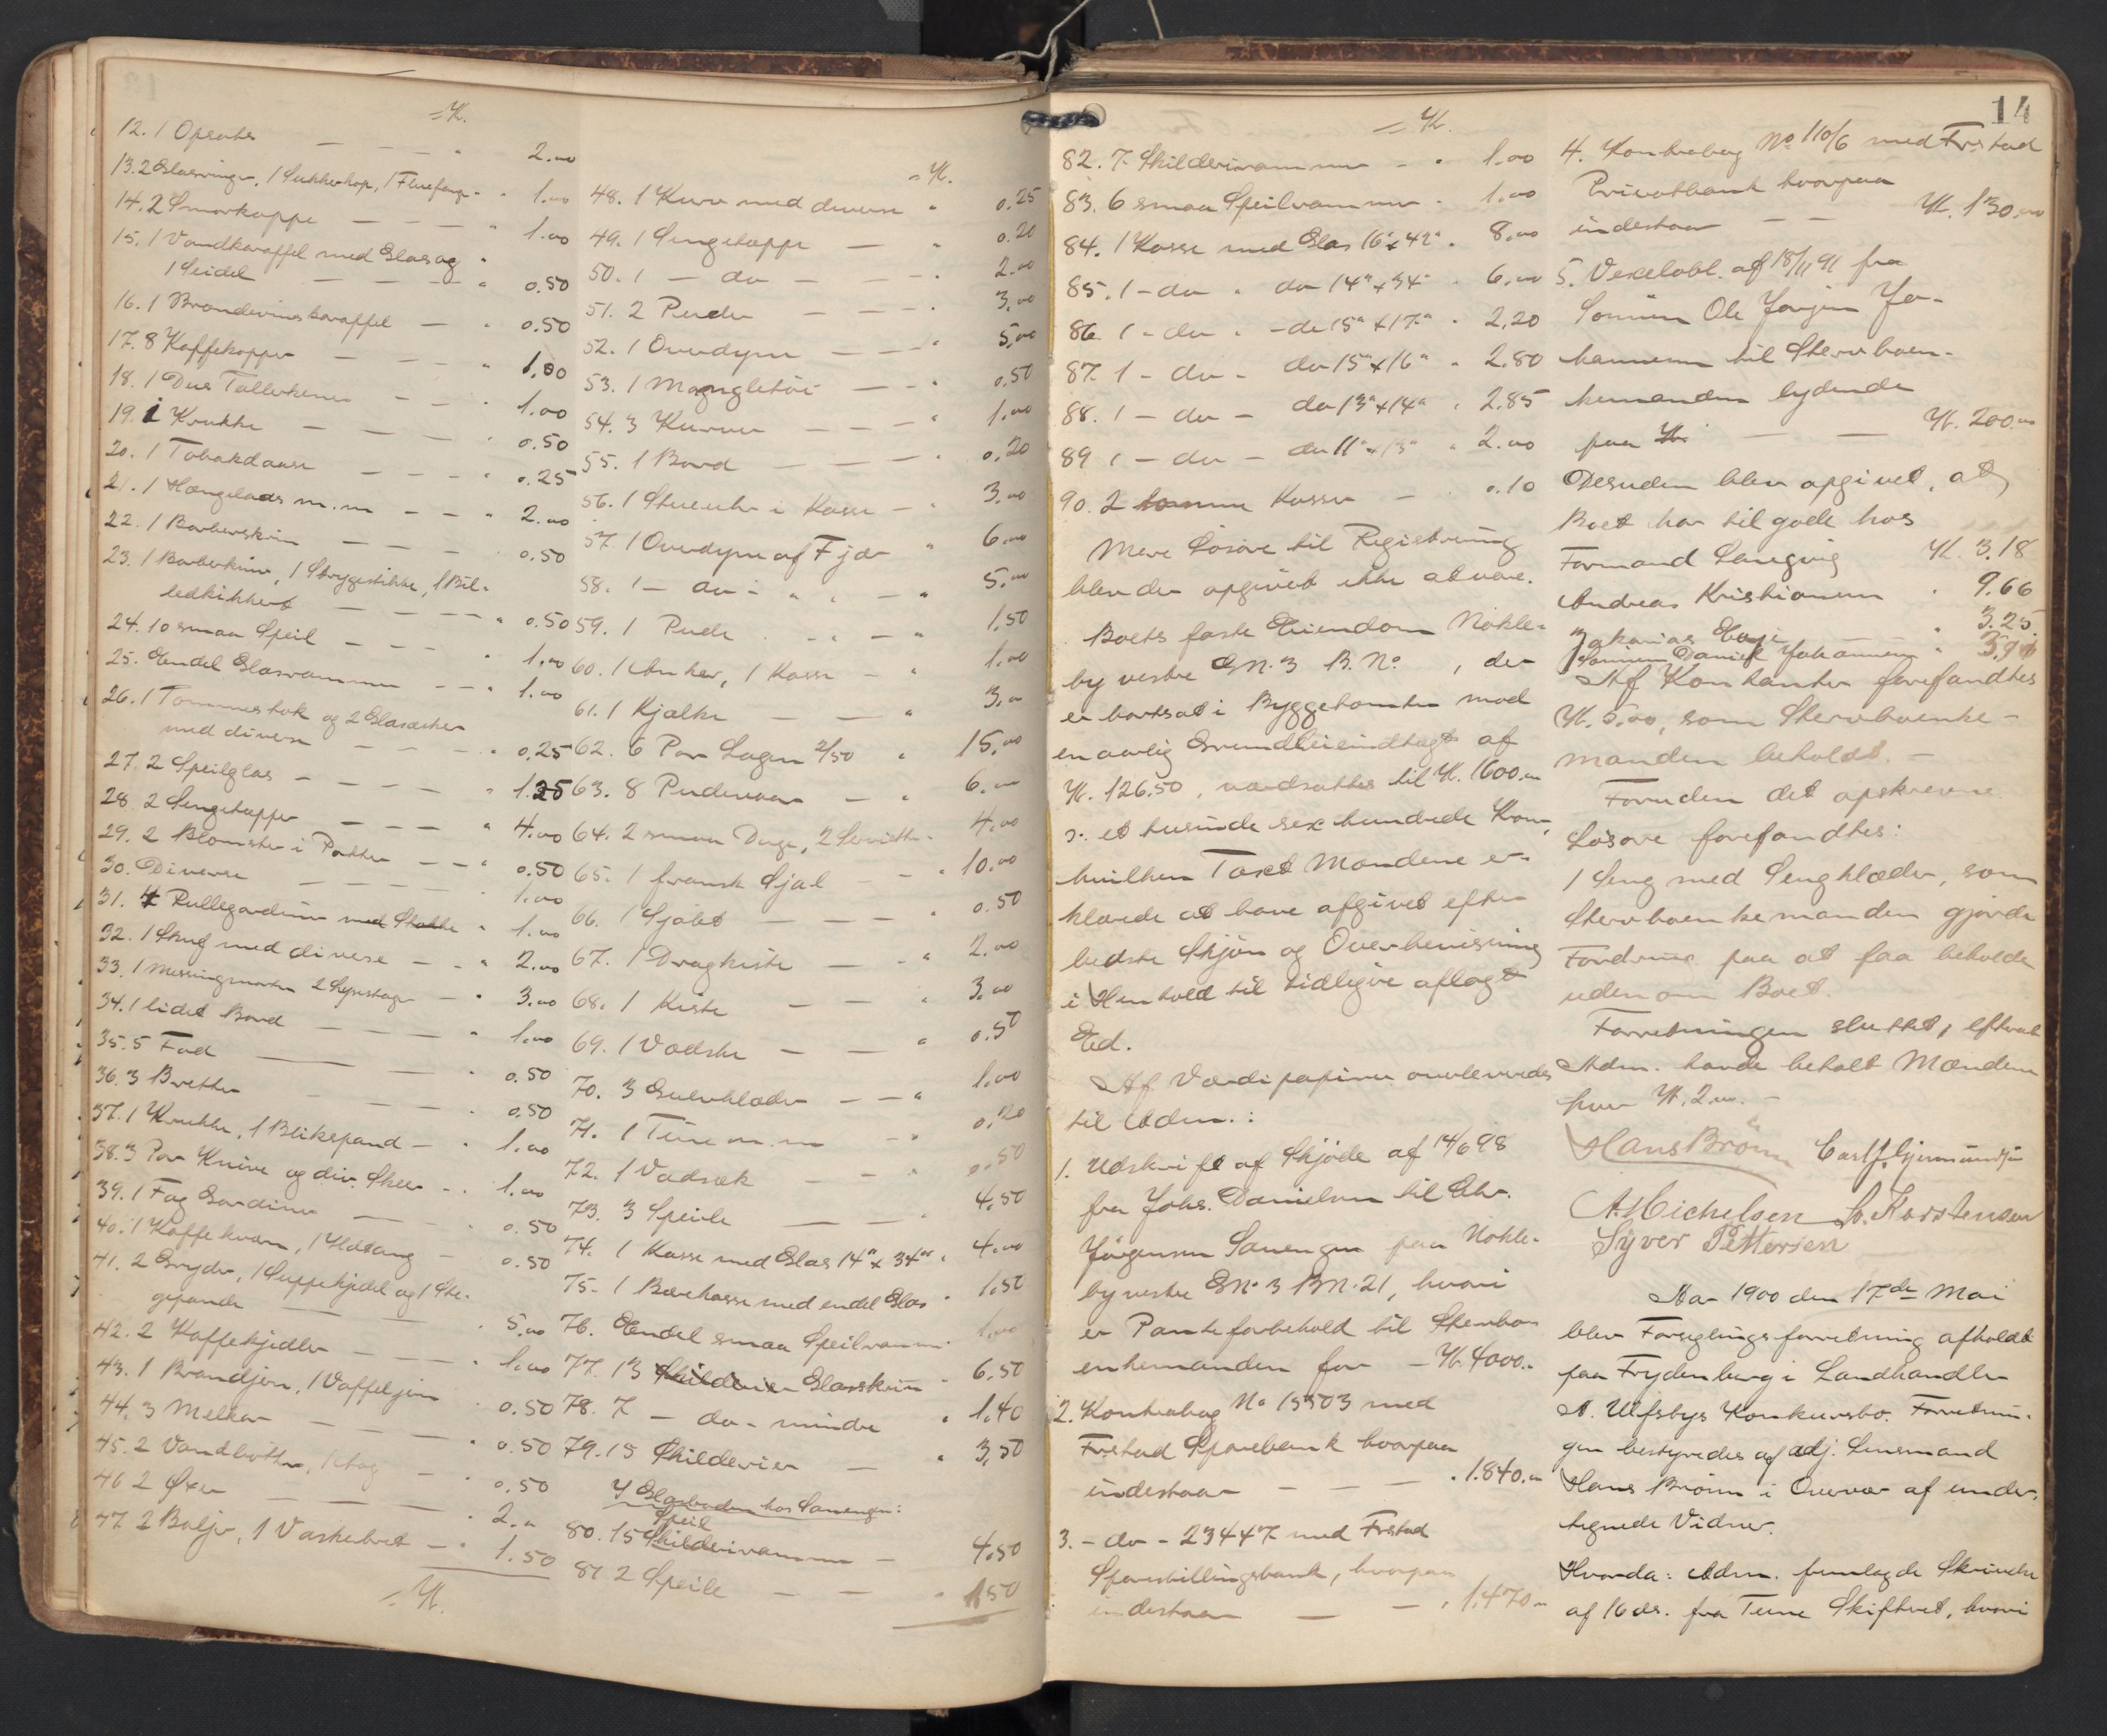 = Kr.
12. 1 Opsats — — — " 2.00
13. 2 Glasringe, 1 Sukkerkop, 1 Fluefang - " 1.00
14. 2 Smørkopper — — — " 1.00
15. 1 Vandkaraffel med Glas og
1 Seidel — — — — " 0.50
16. 1 Brændevinskaraffel — - " 0.50
17. 8 Kaffekopper — — — " 1.00
18. 1 Dus Tallerkener — — " 1.00
19. 1 Krukke — — — — " 0.50
20. 1 Tobakdaase — — — " 0.25
21. 1 Hængelaas m.m — — " 2.00
22. 1 Barberskrin — — — " 0.50
23. 1 Barberkniv, 1 Strygestikke, 1 Bil-
ledkikkert — — — — " 0.50
24. 10 smaa Speil — — — " 1.00
25. Endel Glasrammer — — " 1.00
26. 1 Tommestok og 2 Glasæsker
med diverse — — — " 0.25
27. 2 Speilglas — — — — " 1.25
28. 2 Sengetæpper — — — " 4.00
29. 2 Blomster i Potter — — " 0.50
30. Diverse — — — — " 1.00
31. 4 Rullegardiner med Stokke " 1.00
32. 1 Skuf med diverse — - " 2.00
33. 1 Messingmorter 2 Lysestager — " 3.00
34. 1 lidet Bord — — — — " 1.00
35. 5 Fad — — — " 0.50
36. 3 Bretter — — — — " 0.50
37. 1 Krukke, 1 Blikspand — " 1.00
38. 3 Par Knive og div. Skeer - " 1.00
39. 1 Fag Gardiner — — " 0.50
40. 1 Kaffekværn, 1 Ildtang — 0.50
41. 2 Gryder, 1 Suppekjedel og 1 Ste-
gepande — — — " 5.00
42. 2 Kaffekjedler — — — " 1.00
43. 1 Brandjern, 1 Vaffeljern " 0.50
44. 3 Melkar — — — " 0.50
45. 2 Vandbøtter, — " 0.50
46 2 Øxer — — — — " 2.00
47. 2 Baljer, 1 Vaskebret — " 1.50
= Kr.
= Kr.
48. 1 Kurv med diverse " 0.25
49. 1 Sengetæppe — " 0.20
50. 1 — do — — - 2.00
51. 2 Puder — — — " 3.00
52. 1 Overdyne — — — " 5.00
53. 1 Mangletøi — — " 0.50
54. 3 Kurver — — — " 1.00
55. 1 Bord — — — — " 0.20
56. 1 Stueuhr i Kasse — " 3.00
57. 1 Overdyne af Fjær " 6.00
58. 1 — do — " " — " 5.00
59. 1 Pude — — — " 1.50
60. 1 Anker, 1 Kasse — " 1.00
61. 1 Kjælke — — " 3.00
62. 6 Par Lagen 2/50 " 15.00
63. 8 Pudevaar — — " 6.00
64. 2 smaa Duge, 2 Servietter - 4.00
65. 1 fransk Sjal — " 10.00
66. 1 Sjalet — — — " 0.50
67. 1 Dragkiste — — " 2.00
68. 1 Kiste — — " 3.00
69. 1 Vadske — — " 0.50
70. 3 Gulvklæder — — " 1.00
71. 1 Tine m.m — — " 0.20
72. 1 Vadsæk — — " 0.50
73. 3 Speile — — " 4.50
74. 1 Kasse med Glas 14" x 34" " 4.00
75. 1 Bærekasse med endel Glas " 1.50
76. Endel smaa Speilrammer " 1.00
77. 13 Skilderier Glasskrin " 6.50
78. 7 — do — mindre " 1.40
79. 15 Skilderier — " 3.50
I Glasboden hos Sanengen:
Speil
80. 15 Skilderirammer — 4.50
81 2 Speile — — " 1.50
14
= Kr.
82. 7 Skilderirammer - " 1.00
83. 6 smaa Speilrammer - 1.00
84. 1 Kasse med Glas 16" x 42" " 8.00
85. 1 - do " do 14" x 34" " 6.00
86. 1 - do " - do 15" x 17" " 2.20
87. 1 - do - do 15" x 16" " 2.80
88. 1 - do - do 13" x 14" " 2.85
89 1 - do - do 11" x 13" " 2.00
90. 2 tomme Kasser — " 0.10
Mere Løsøre til Registrering
blev der opgivet ikke at være.
Boets faste Eiendom Nøkle-
by vestre GN. 3 B.No , der
er bortsat i Byggetomter mod
en aarlig Grundleieindtægt af
Kr. 126.50, værdsattes til Kr. 1600.00
ɔ: et tusinde sex hundrede Kroner,
hvilken Taxt Mændene er-
klærede at have afgivet efter
bedste Skjøn og Overbevisning
i Henhold til tidligere aflagt
Ed.
Af Værdipapirer overleveredes
til Adm.:
1. Udskrift af Skjøde af 14/6 98
fra Johs. Danielsen til Chr.
Jørgensen Sanengen paa Nøkle-
by vestre GN. 3 BN. 21, hvori
er Panteforbehold til Stervbo-
enkemanden for — Kr. 4000.-
2. Kontrabog No 15503 med
Frstad Sparebank hvorpaa
indestaar — — — " 1.840.00
3. - do - 23447 med Frstad
Spareskillingsbank, hvorpaa
indestaar — — " 1.470.00
4. Kontrabog No 110/6 med Frstad
Privatbank hvorpaa
indestaar — — Kr. 130.00
5. Vexelobl. af 18/11 91 fra
Sønnen Ole Jørgen Jo-
hannesen til Stervboen-
kemanden lydende
paa Kr. — — Kr. 200.00
Desuden blev opgivet, at
Boet har til gode hos
Formand Langvig Kr. 3.18
Andreas Kristiansen " 9.66
Zakarias " 3.25
Sønnen Daniel Johannesen "
Af Kontanter forefandtes
Kr. 5.00, som Stervboenke-
manden beholdt. —
Foruden det opskrevne
Løsøre forefandtes:
1 Seng med Sengklæder, som
Stervboenkemanden gjorde
Fordring paa at faa beholde
udenom Boet.
Forretningen sluttet, efterat
Adm. havde betalt Mændene
hver Kr. 2.00. —
Hans Brönn Carl J. Gjermundsen
A. Michelsen S. Karstensen
Syver Pettersen
Aar 1900 den 17de Mai
blev Forseglingsforretning afholdt
paa Frydenberg i Landhandler
A. Ulfsbys Konkursbo. Forretnin-
gen bestyredes af adj. Lensmand
Hans Brönn i Overvær af under-
tegnede Vidner.
Hvorda: Adm. fremlagde Skrivelse
af 16 ds. fra Tune Skifteret, hvori